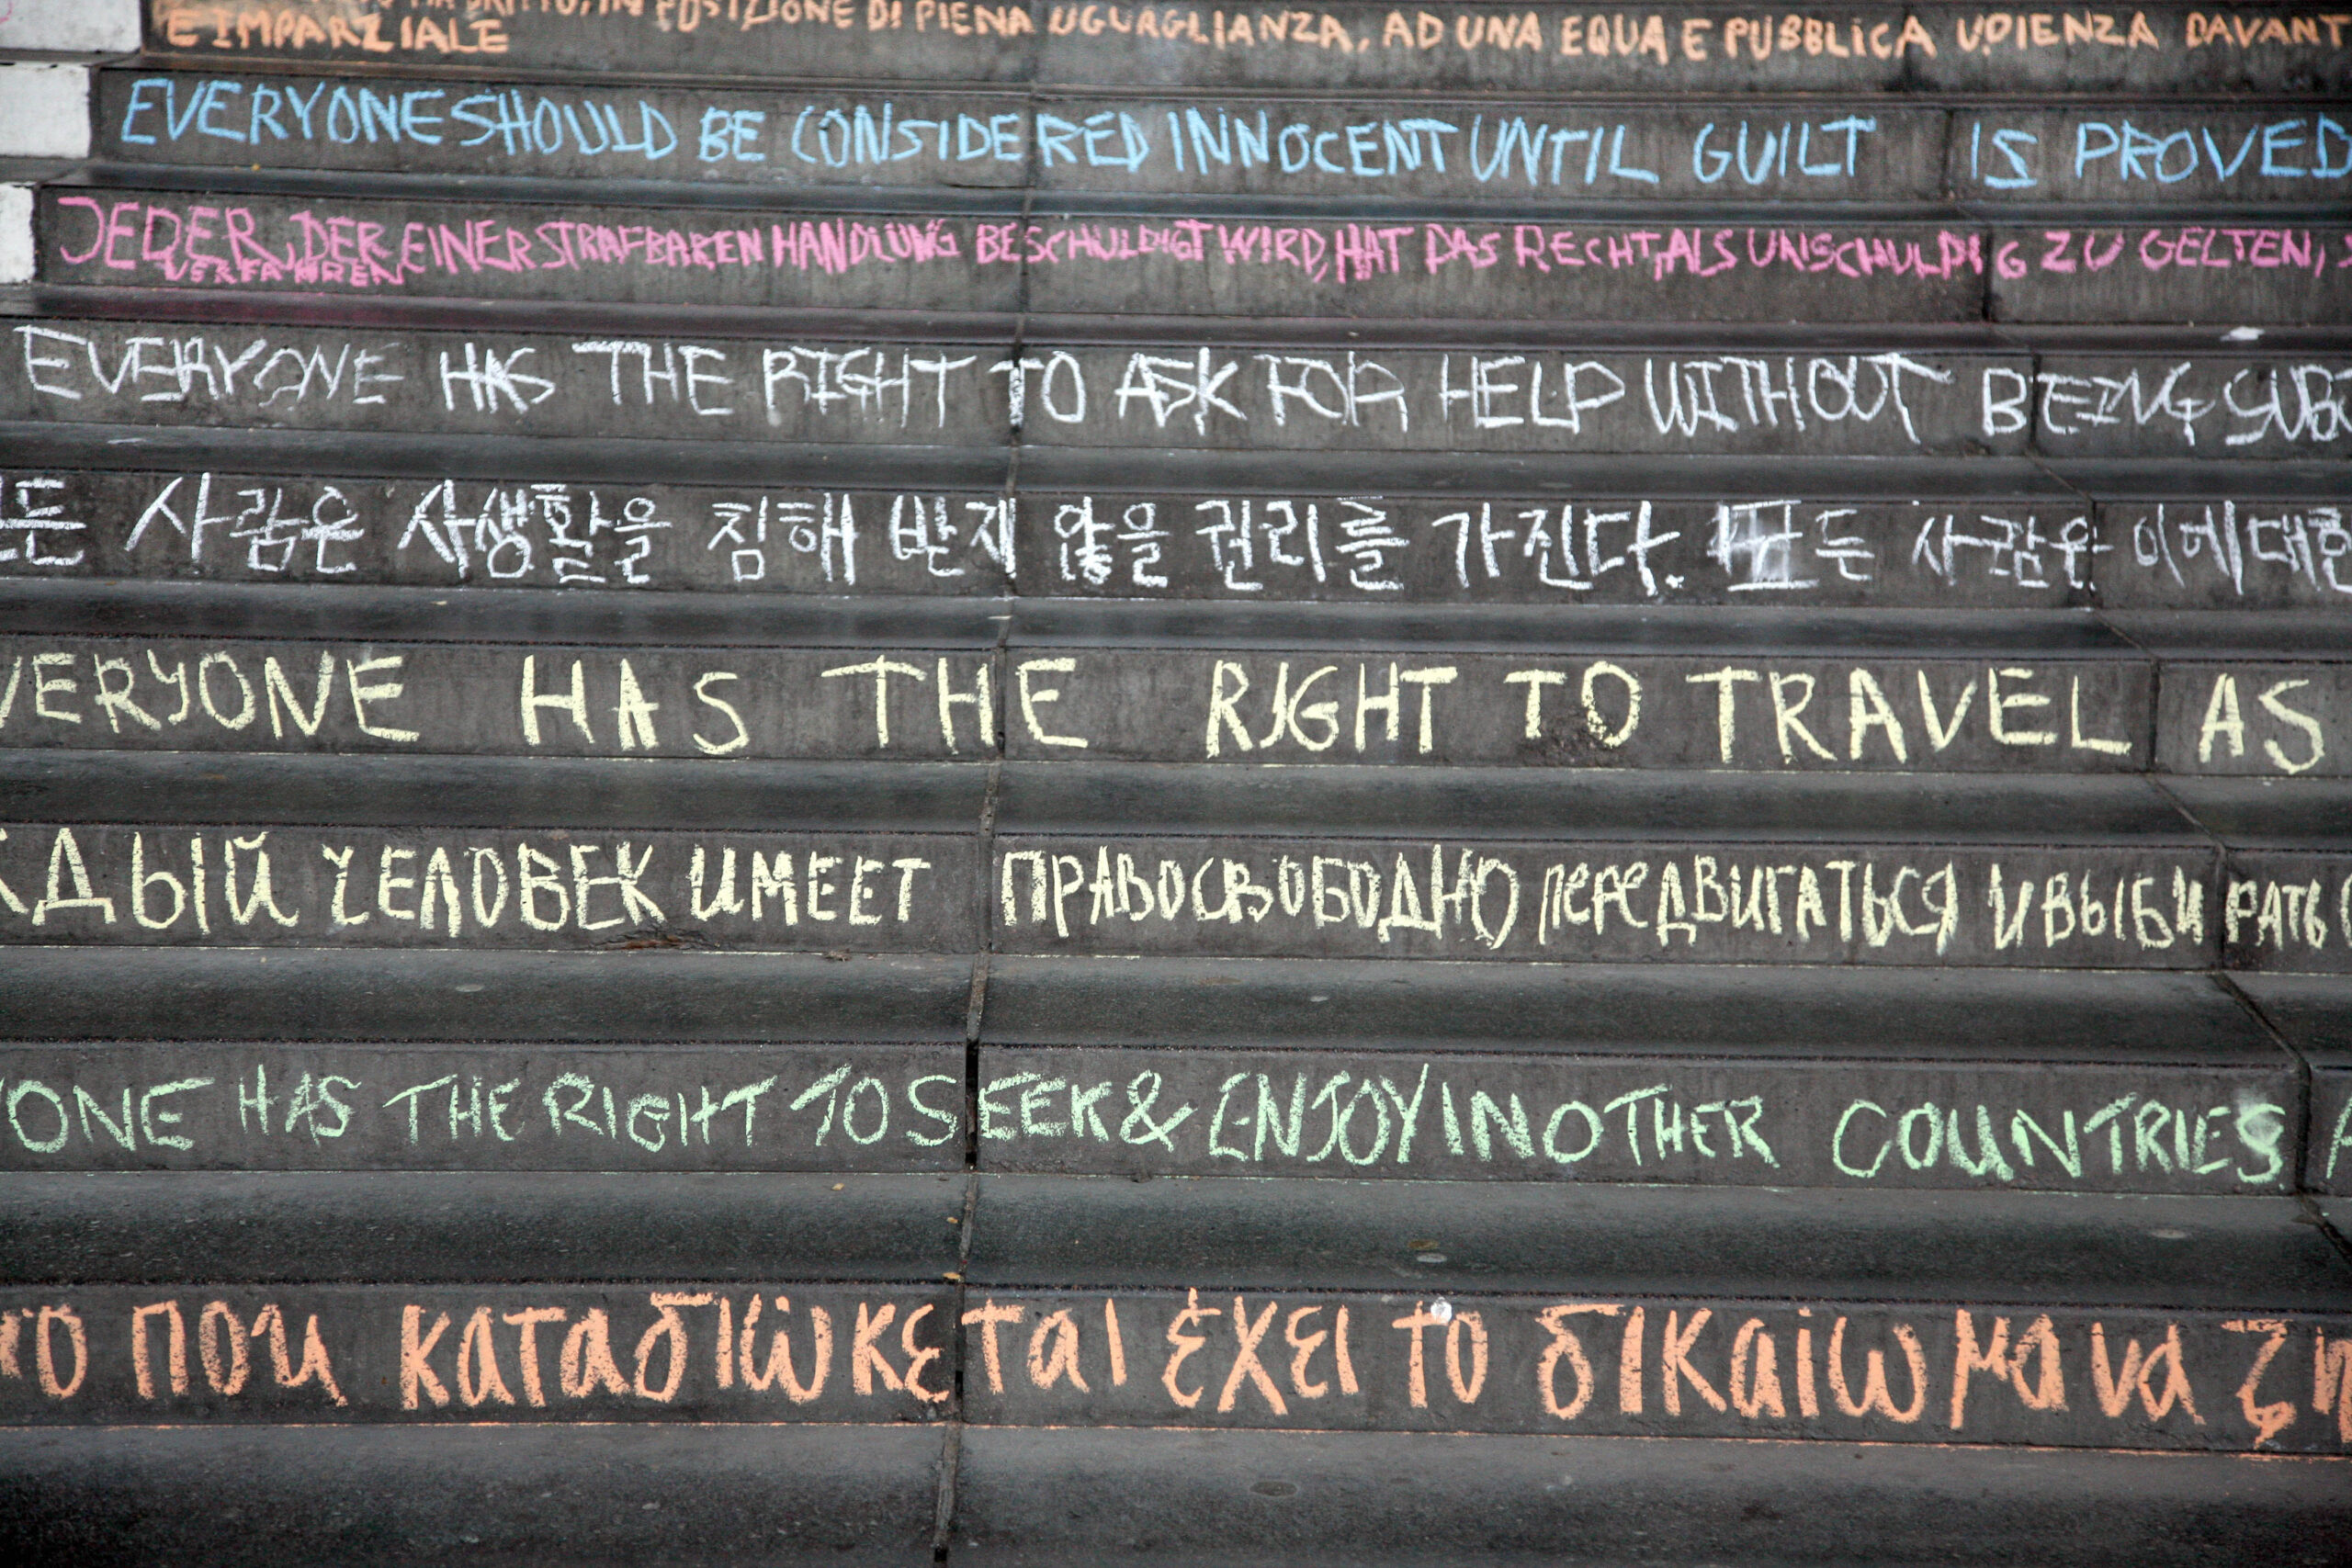 DIRITTO, IN POSIZIONE DI PIENA UGUAGLIANZA, AD UNA EQUA E PUBBLICA UDIENZA DAVANT
E IMPARZIALE
EVERYONE SHOULD BE CONSIDERED INNOCENT UNTIL GUILT IS PROVED
JEDER, DER EINER STRAFBAREN HANDLUNG BESCHULDIGT WIRD, HAT DAS RECHT, ALS UNSCHULDIG ZU GELTEN,
VERFAHREN
EVERYONE HAS THE RIGHT TO ASK FOR HELP WITHOUT BEING
든 사람은 사생활을 침해 받지 않을 권리를 가진다. 모든 사람은 이에대한
VERYONE HAS THE RIGHT TO TRAVEL AS
ЖДЫЙ ЧЕЛОВЕК ИМЕЕТ ПРАВО СВОБОДНО ПЕРЕДВИГАТЬСЯ И ВЫБИРАТЬ
YONE HAS THE RIGHT TO SEEK & ENJOY IN OTHER COUNTRIES
που καταδιώκεται έχει το δικαίωμα να